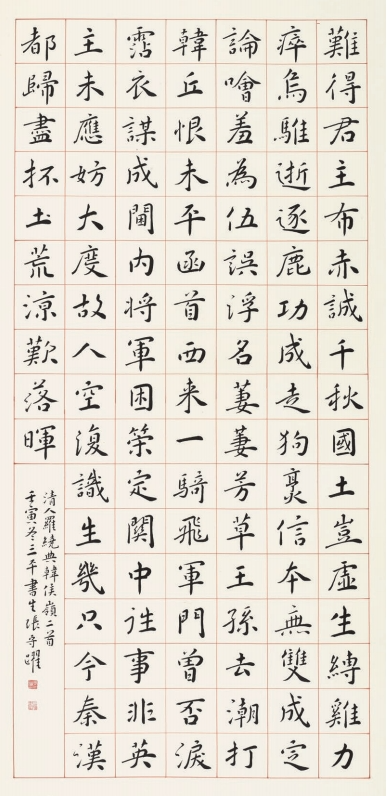 難得君主布赤誠千秋國土豈虛生縛雞力
瘁烏騅逝逐鹿功成走狗烹信本無雙成定
論噲羞為伍誤浮名萋萋芳草王孫去潮打
韓丘恨未平函首西来一騎飛軍門曾否淚
霑衣謀成閫内将軍困策定關中往事非英
主未應妨大度故人空復識生幾只今秦漢
都歸盡抔土荒涼歎落暉
清人羅繞典韓侯嶺二首
壬寅冬三平書生張守躍